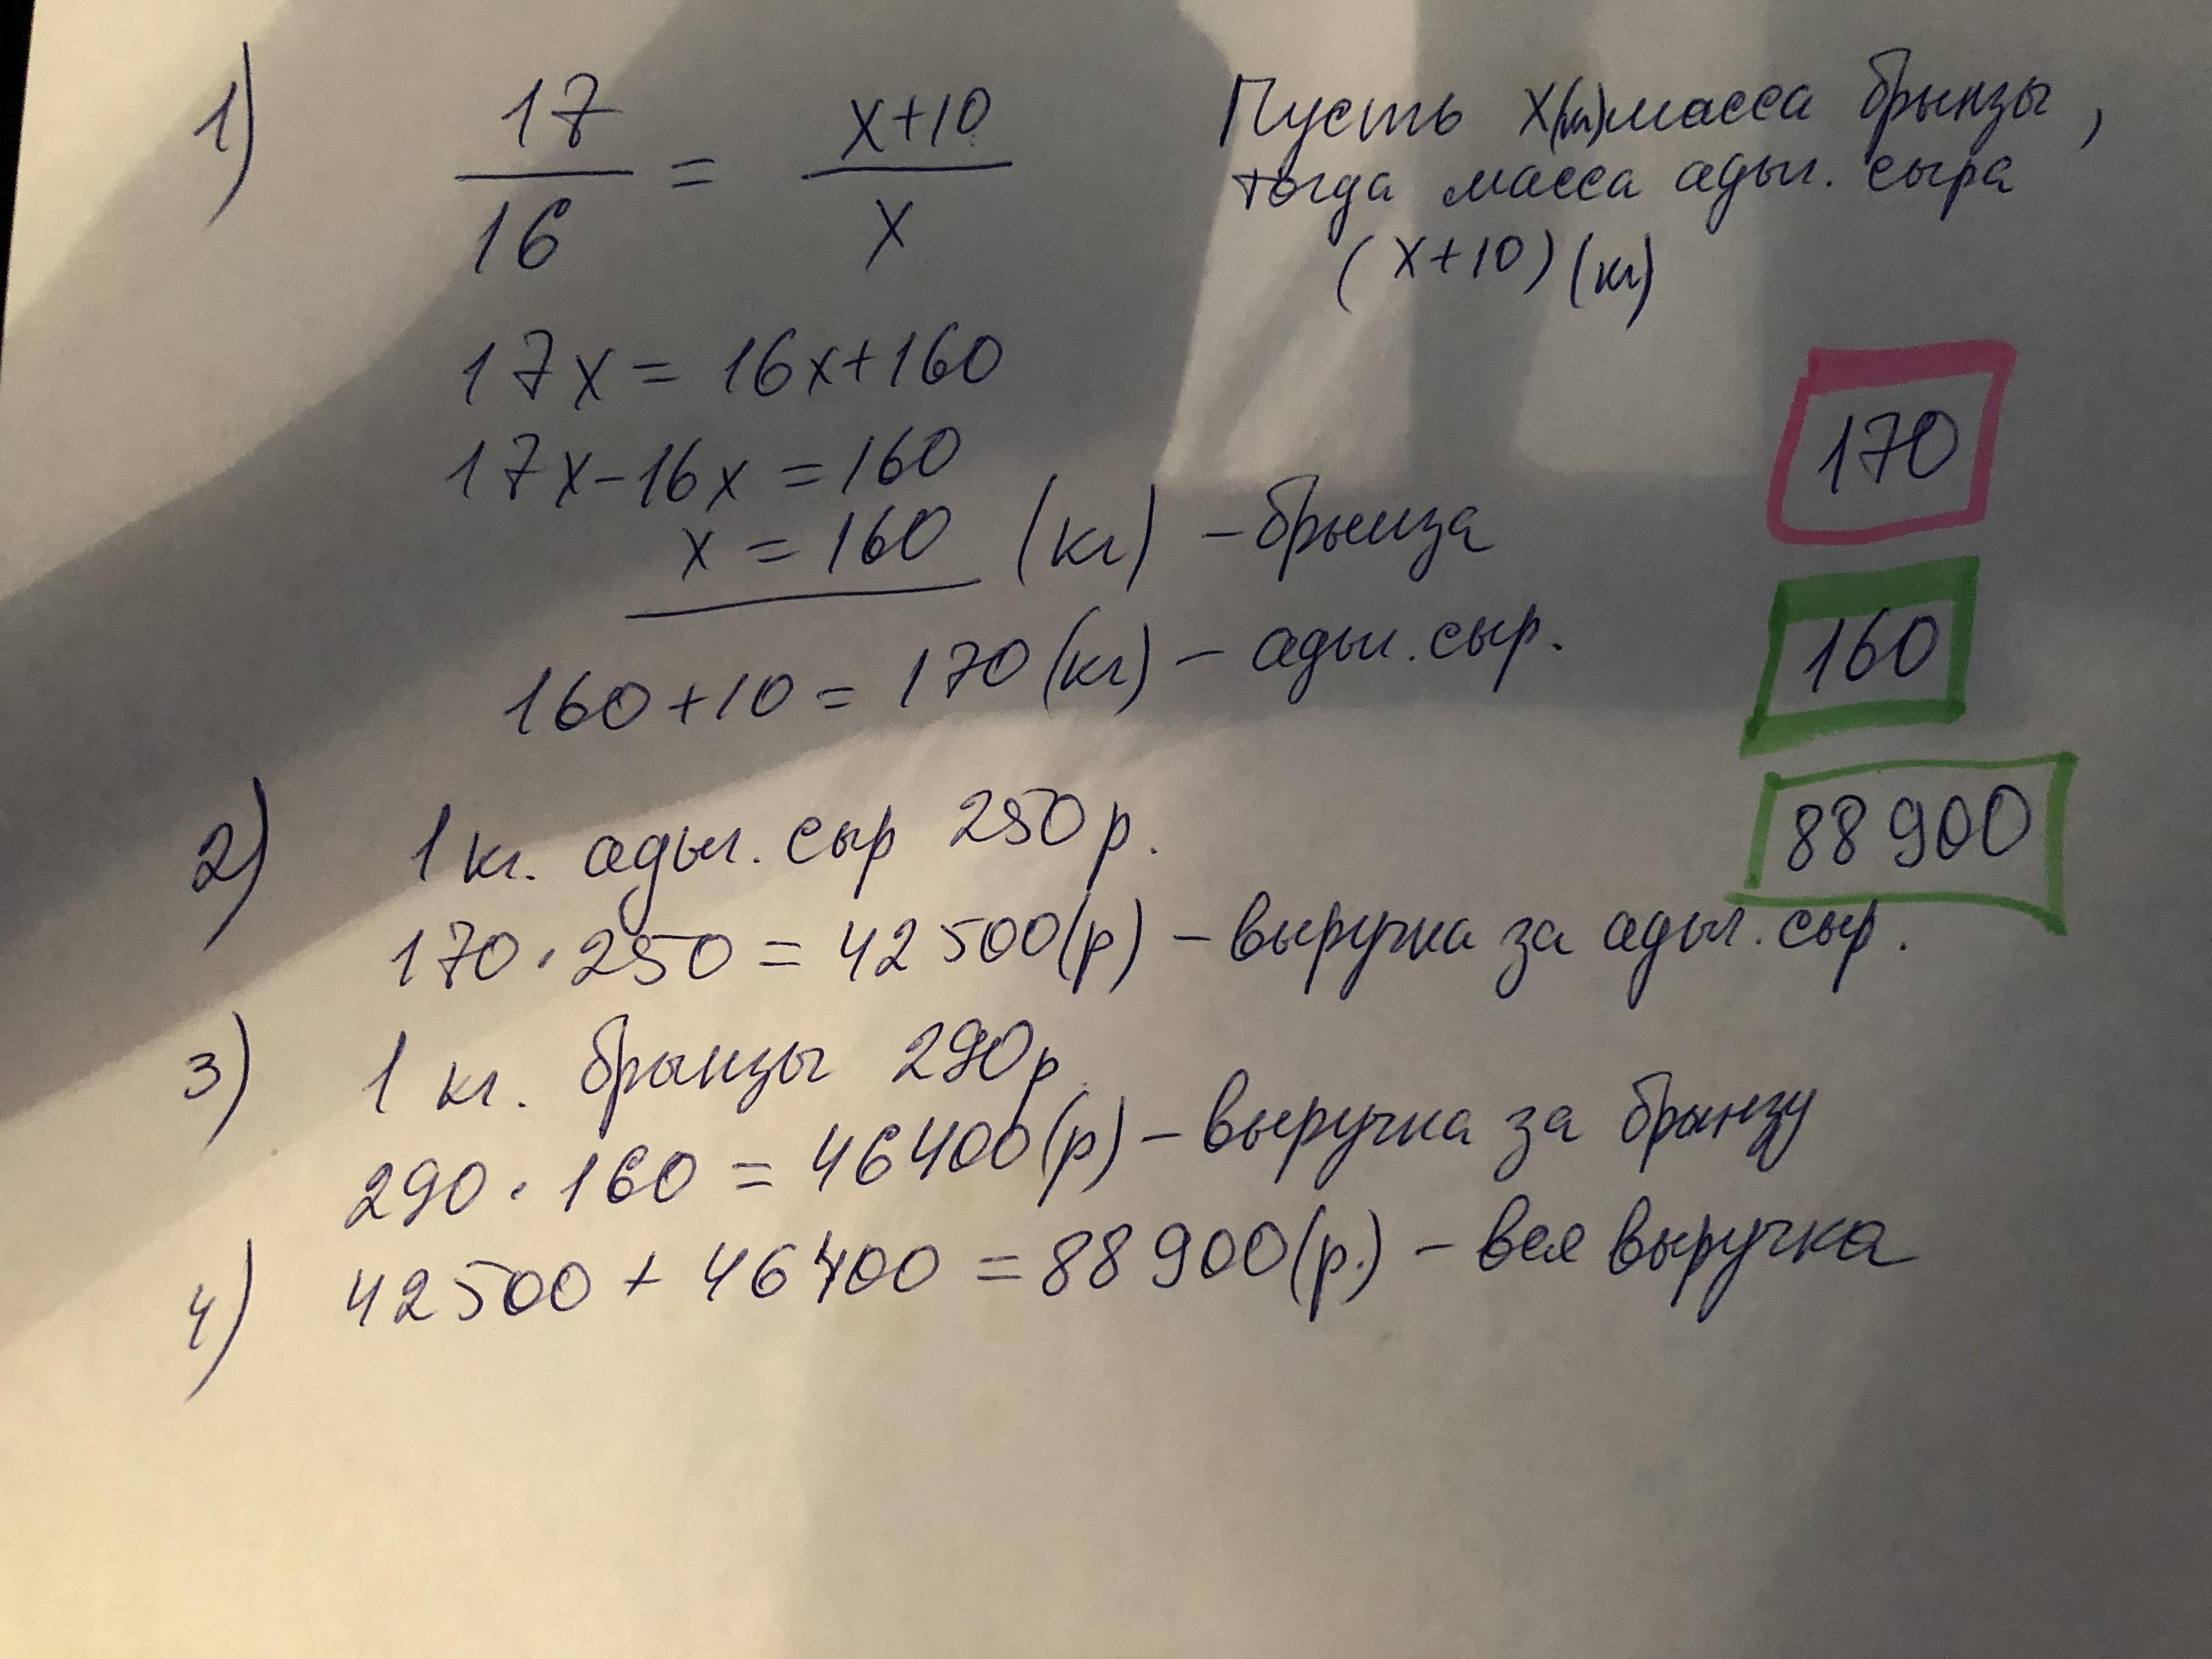 1) 17/16 = x+10/x
Пусть x(кг) масса брынзы,
тогда масса адыг. сыра
(x+10) (кг)
17x = 16x+160
17x-16x = 160
x = 160 (кг) - брынза
160+10 = 170 (кг) - адыг. сыр.
170
160
88 900
2) 1 кг. адыг. сыр 250 р.
170 · 250 = 42 500(р) - выручка за адыг. сыр.
3) 1 кг. брынзы 290р.
290 · 160 = 46400(р) - выручка за брынзу
4) 42500 + 46400 = 88 900(р.) - вся выручка